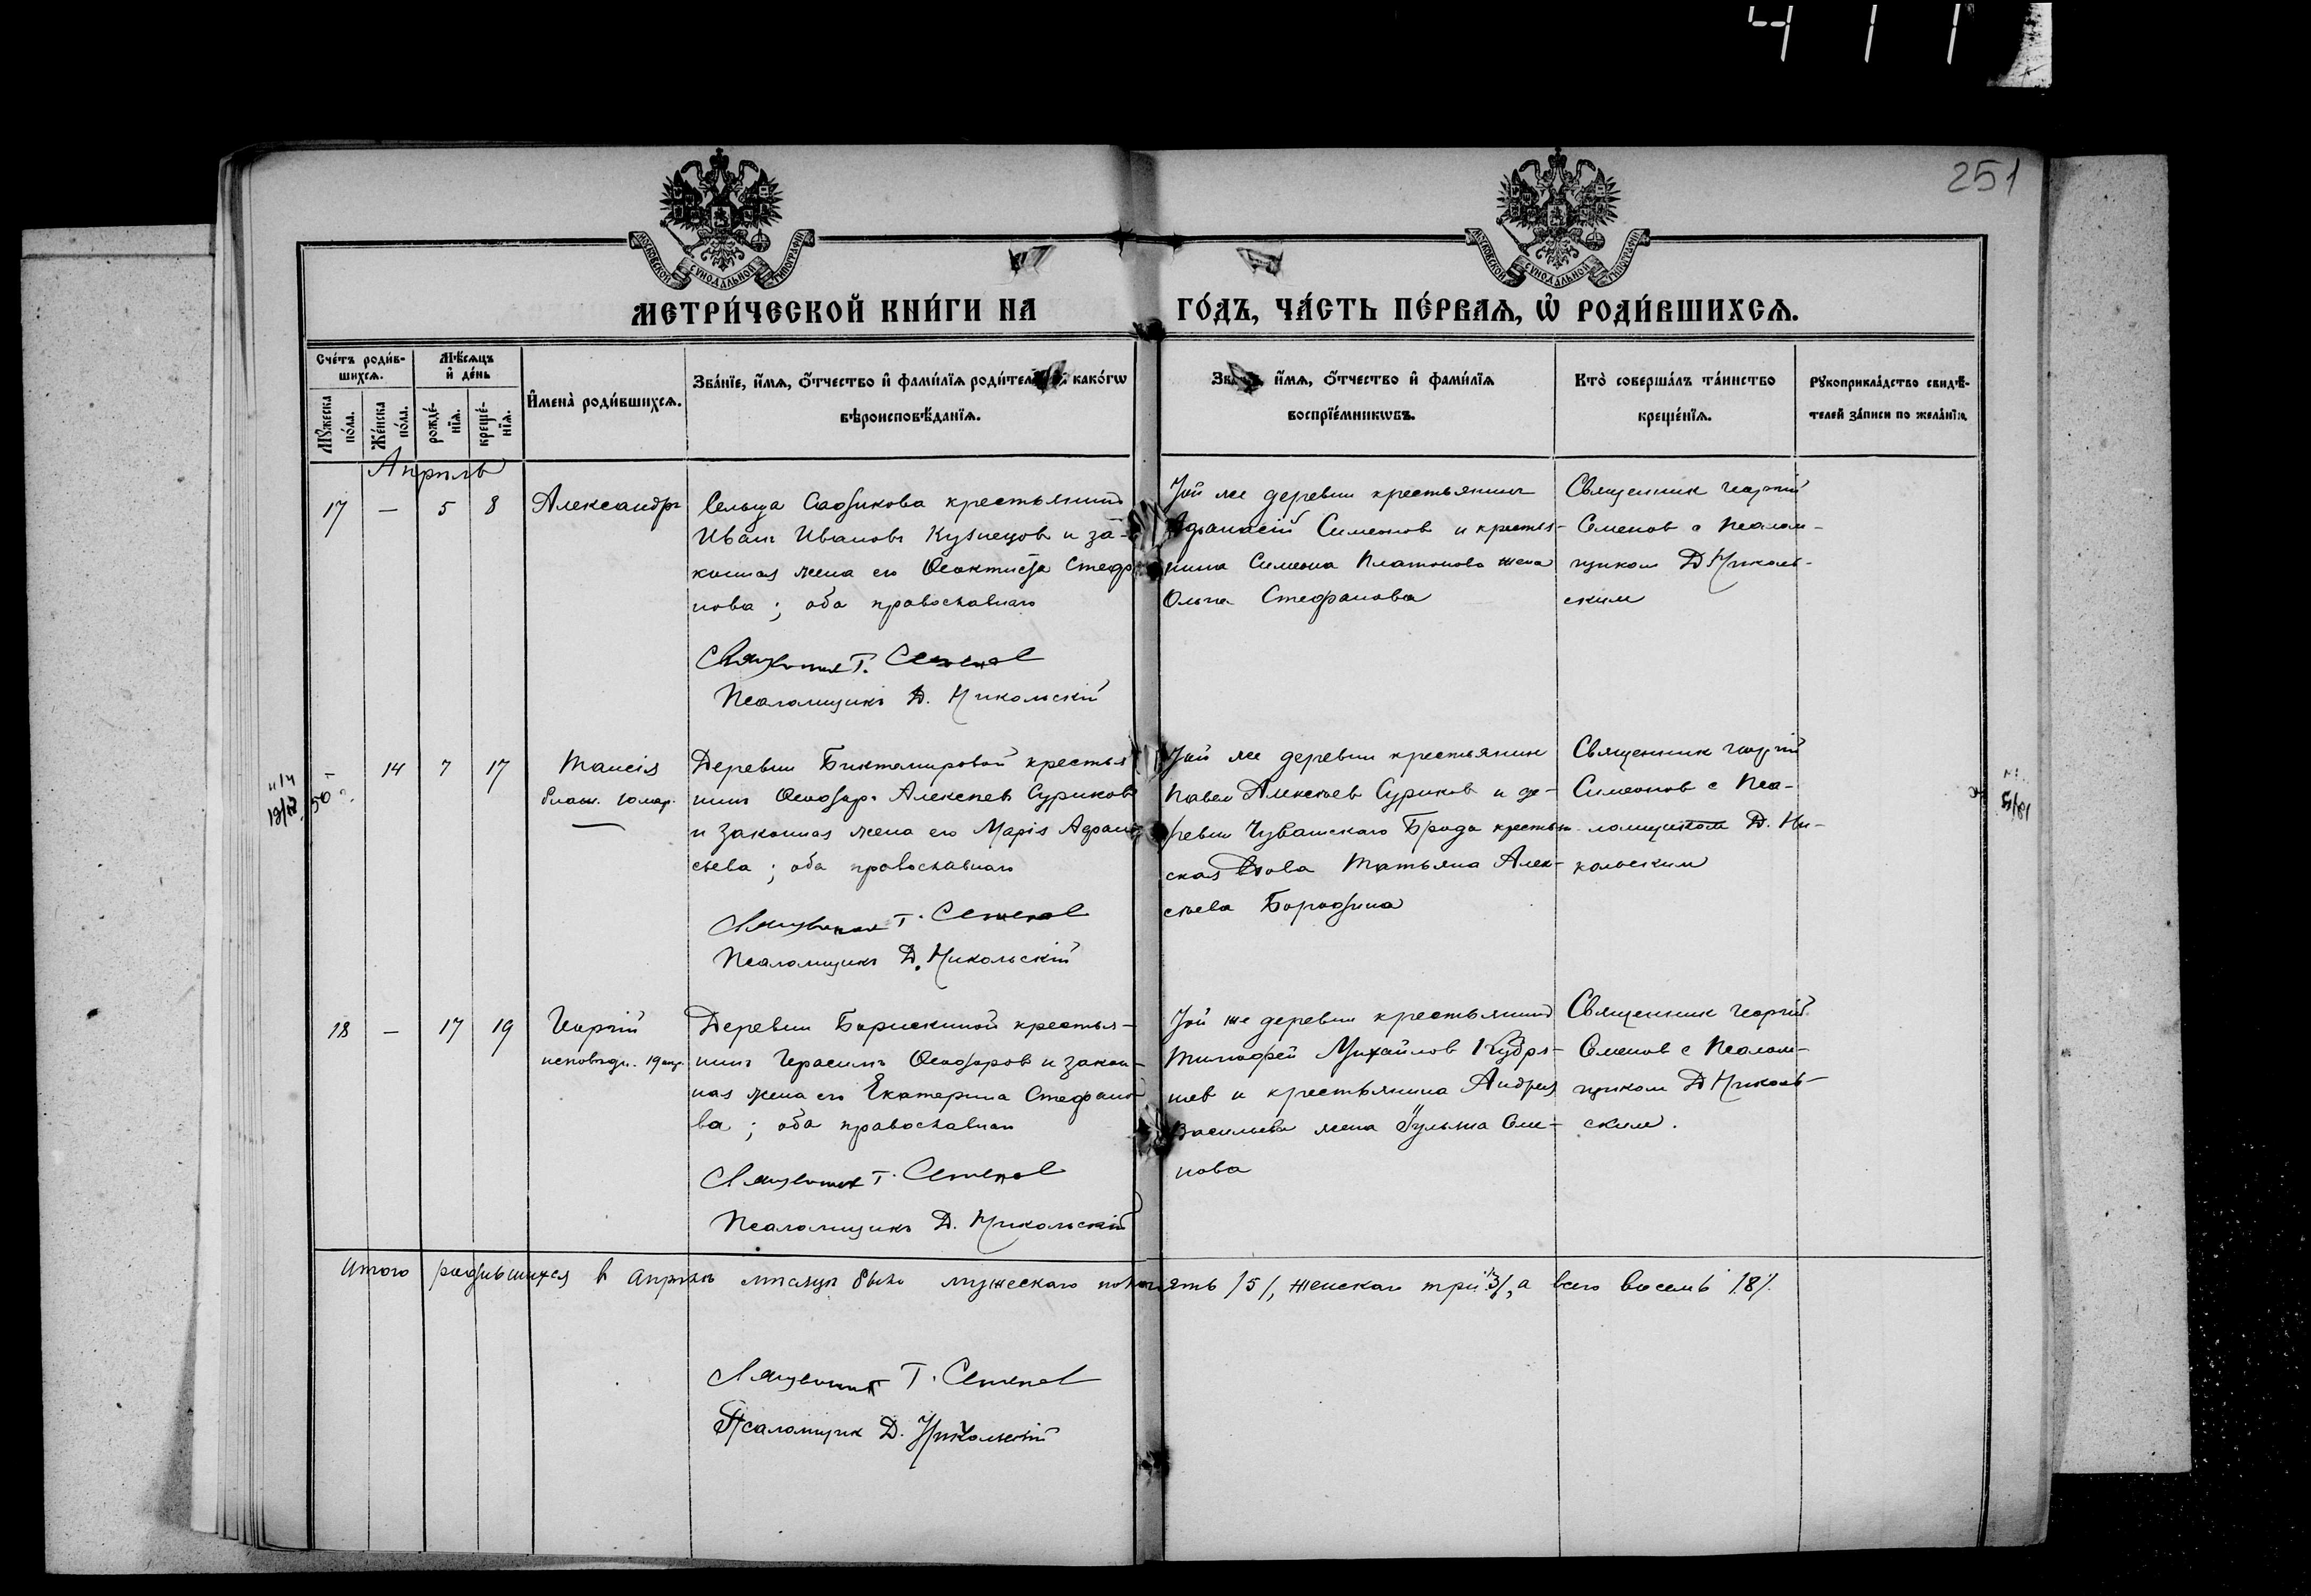 411
251
МОСКОВСКОЙ СУНОДАЛЬНОЙ ТИПОГРАФІИ
МОСКОВСКОЙ СУНОДАЛЬНОЙ ТИПОГРАФІИ
МЕТРИ́ЧЕСКОЙ КНИ́ГИ НА ГО́ДЪ, ЧА́СТЬ ПЕ́РВАЯ, Ѡ РОДИ́ВШИХСЯ.
Сче́тъ роди́в-
шихся.
Му́жеска по́ла.
Же́нска по́ла.
Мѣ́сяцъ и де́нь
рожде́-нія.
креще́-нія.
Имена̀ роди́вшихся.
Зва́ніе, и́мя, о́тчество и фами́лія роди́телей како́гѡ
вѣроисповѣ́данія.
Зва́ніе, и́мя, о́тчество и фами́лія
воспріе́мникѡвъ.
Кто̀ соверша́лъ та́инство
креще́нія.
Рукоприкла́дство свидѣ́-
телей за́писи по жела́нію.
Апрѣль
17 — 5 8 Александръ
Сельца Садыкова крестьянинъ
Иванъ Ивановъ Кузнецов и за-
конная жена его Ѳеоктиста Стефа
нова ; оба православнаго
Священник Г. Семенов
Псаломщикъ Д. Никольскій
Той же деревни крестьянинъ
Афанасій Симеонов и крестья-
нина Симеона Платонова жена
Ольга Стефанова
Священник Георгій
Семенов с Псалом-
щиком Д Николь-
ским
14 7 17 Таисія
Деревни Биктемировой крестья
нинъ Ѳеодоръ Алексѣев Суриковъ
и законная жена его Марія Афана
сьева ; оба православнаго
Священник Г. Семенов
Псаломщикъ Д. Никольскій
Той же деревни крестьянин
Павел Алексѣев Суриков и де-
ревни Чувашскаго Брода крестьян
ская вдова Татьяна Алек-
сѣева Бородина
Священник Георгій
Симеонов с Пса-
ломщиком Д. Ни-
кольским
18 — 17 19 Георгій
исповѣдн.
Деревни Борискиной крестья-
нинъ Герасимъ Ѳеодоров и закон-
ная жена его Екатерина Стефано
ва ; оба православнаго
Священник Г. Семенов
Псаломщикъ Д. Никольскій
Той же деревни крестьянинъ
Тимофей Михайлов Кудря-
шев и крестьянина Андрея
Васильева жена Сем-
нова
Священник Георгій
Семенов с Псалом-
щиком Д Николь-
ским.
Итого родившихся в апрѣлѣ мѣсяцѣ было мужескаго пола пять /5/, женскаго три /3/, а всего восемь /8/.
Священник Г. Семенов
Псаломщик Д. Никольскій